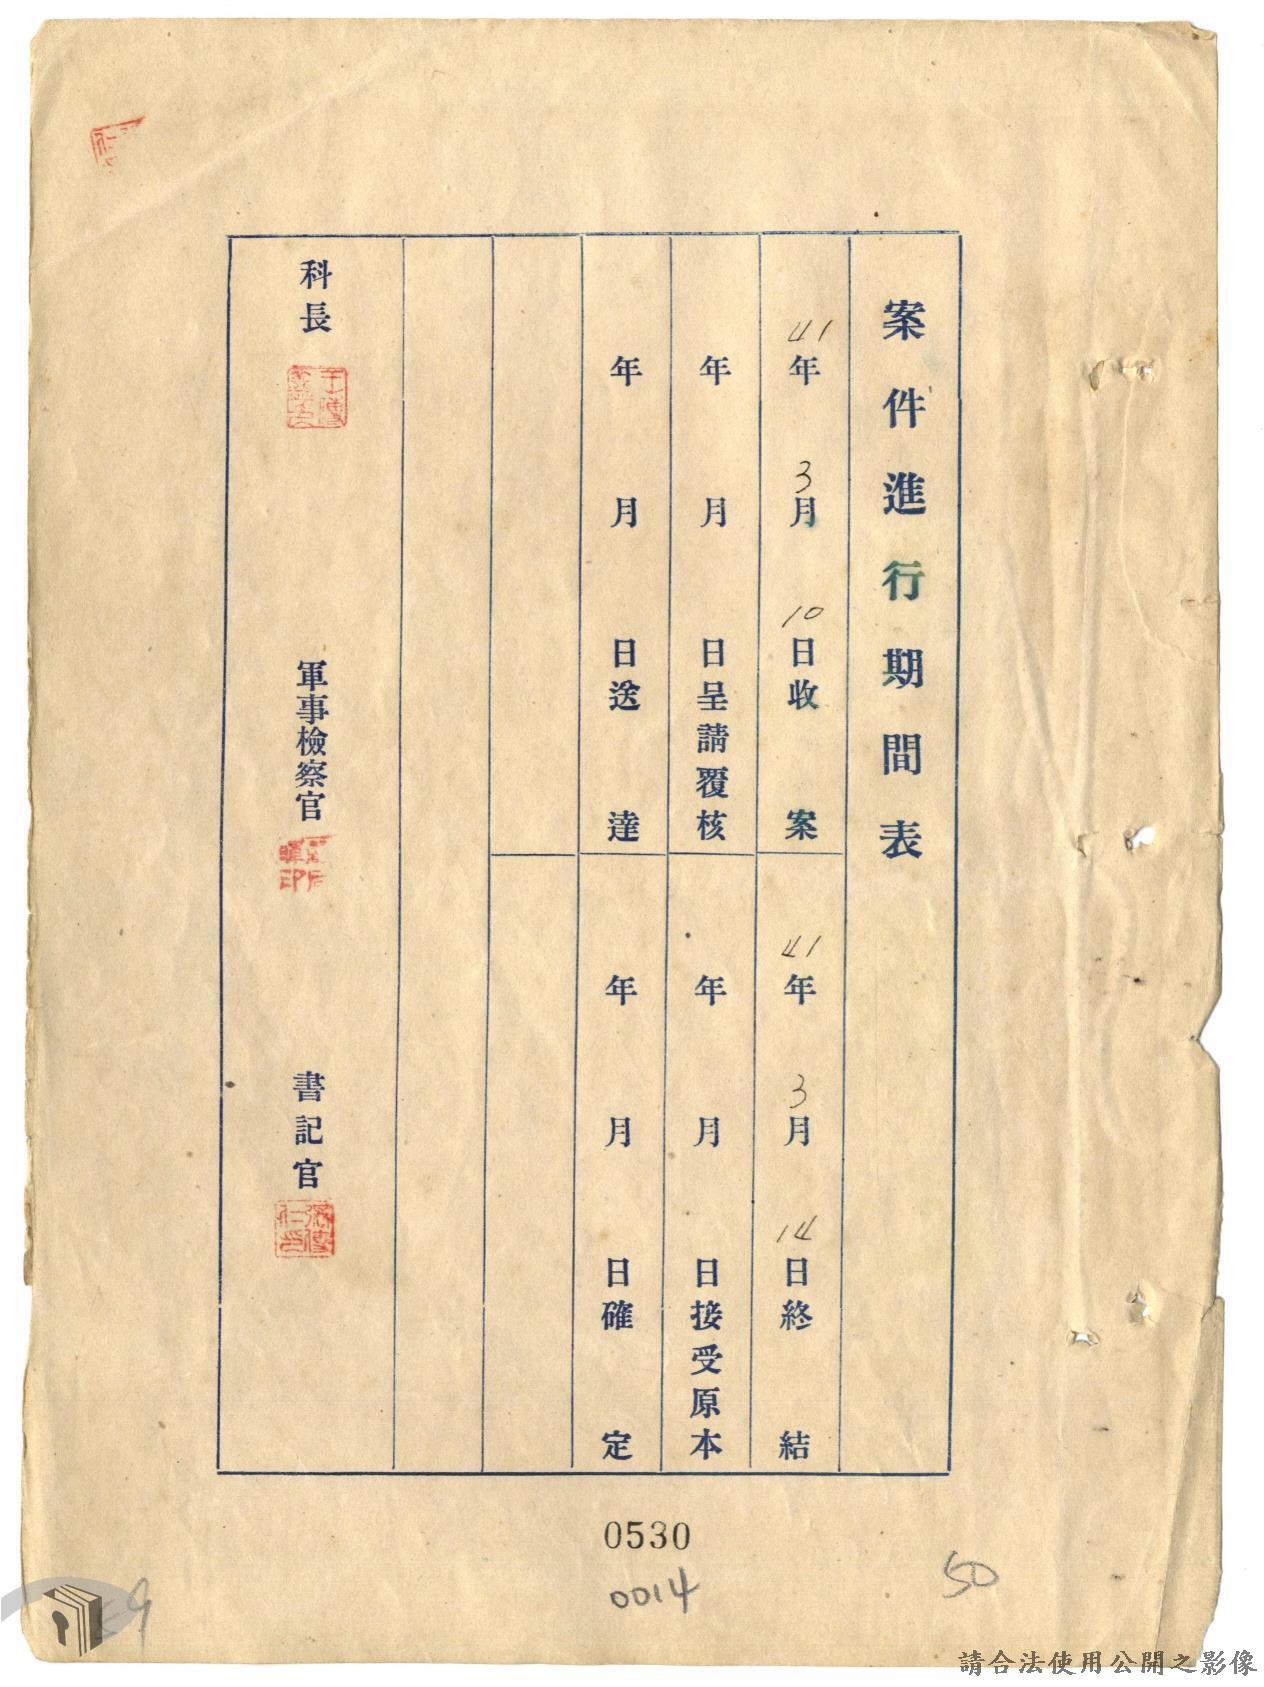 案件進行期間表
41年3月10日收案
41年3月14日終結
年月日呈請覆核
年月日接受原本
年月日送達
年月日確定
科長
軍事檢察官
書記官
0530
0014
50
請合法使用公開之影像